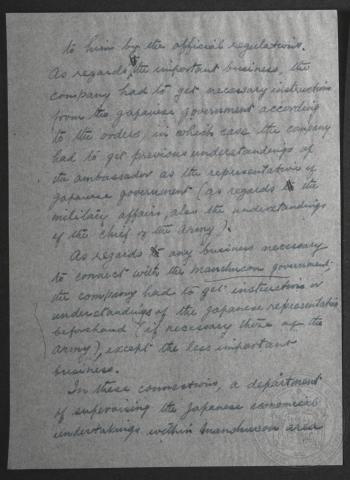 to him by the official regulations.
As regards the important business, the
company had to get necessary instructions
from the Japanese government according
to the orders, in which case the company
had to get previous understandings of
the ambassador as the representative of
Japanese government (as regards the
military affairs, also the understandings
of the chief of the army).
As regards any business necessary
to connect with the manchurian government,
the company had to get instructions or
understandings of the Japanese representative
beforehand (if necessary those of the
army), except the less important
business.
In these connections, a department
of supervising the Japanese economical
undertakings within manchurian area